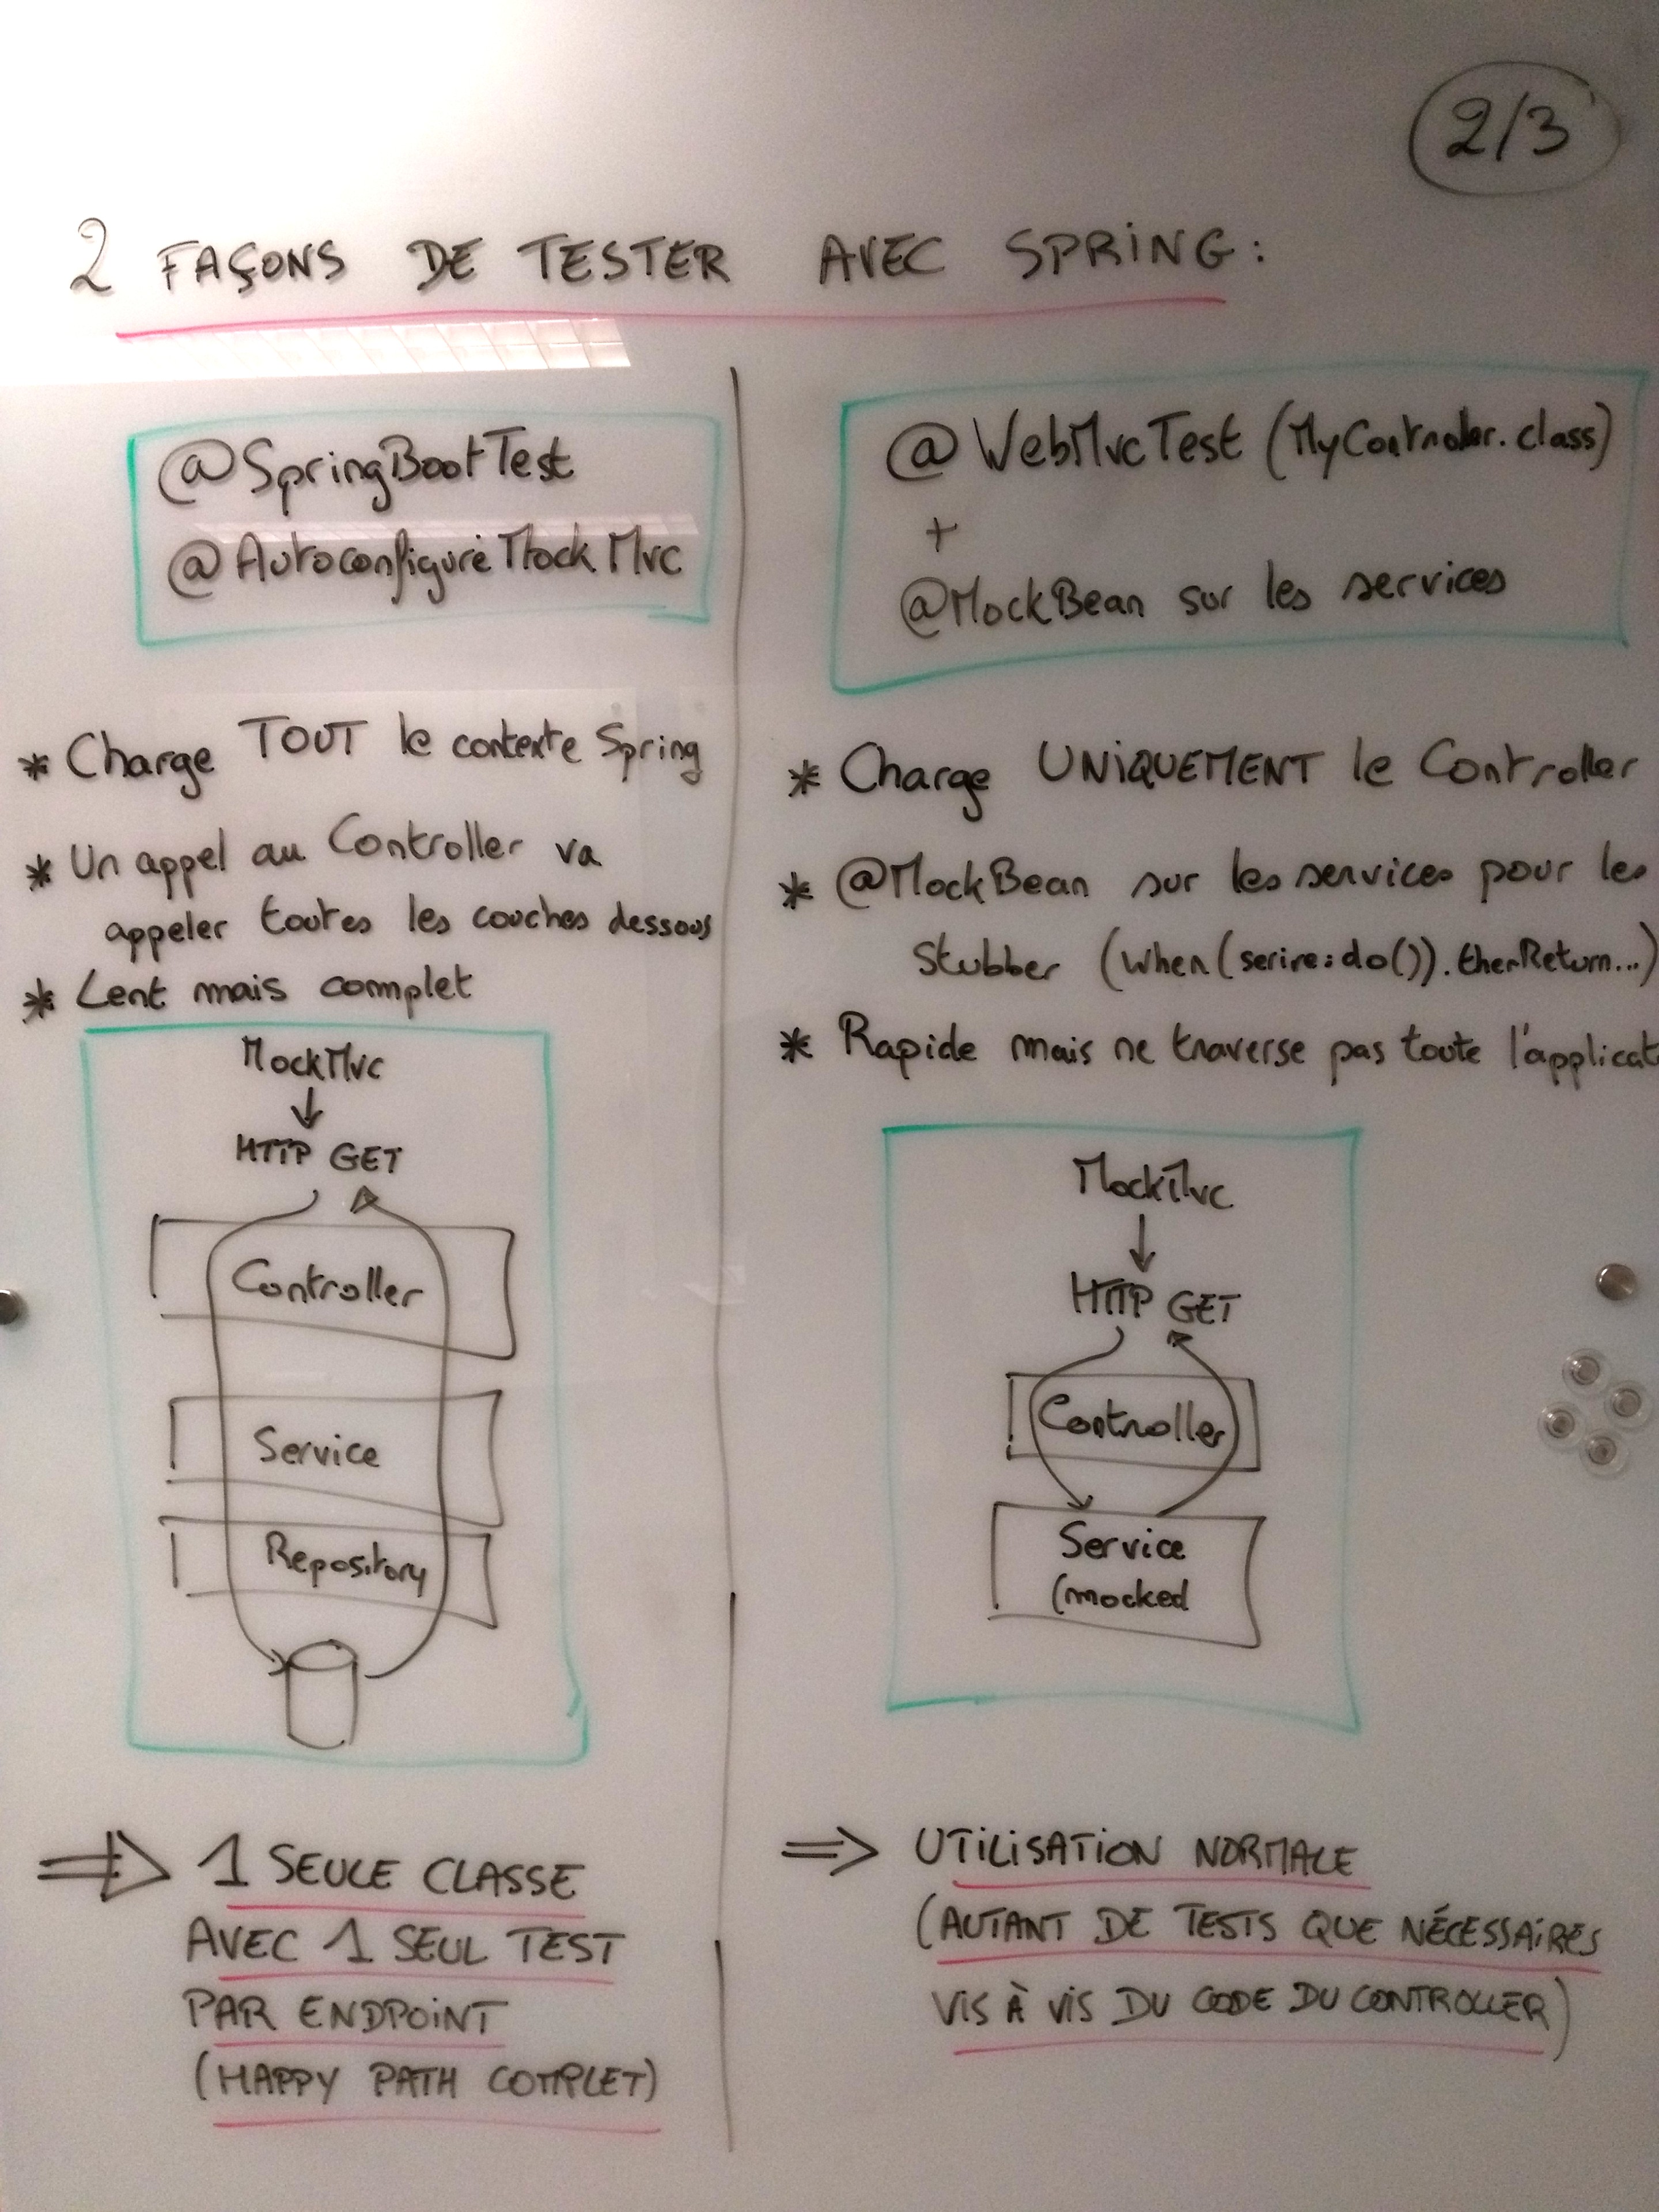 2/3
2 FAÇONS DE TESTER AVEC SPRING:
@SpringBootTest
@AutoconfigureMockMvc
* Charge TOUT le contexte Spring
* Un appel au Controller va
appeler toutes les couches dessous
* Lent mais complet
MockMvc
HTTP GET
Controller
Service
Repository
⇒ 1 SEULE CLASSE
AVEC 1 SEUL TEST
PAR ENDPOINT
(HAPPY PATH COMPLET)
@WebMvcTest (MyController.class)
+
@MockBean sur les services
* Charge UNIQUEMENT le Controller
* @MockBean sur les services pour les
Stubber (when( .do()).thenReturn...)
* Rapide mais ne traverse pas toute l'applicat
MockMvc
HTTP GET
Controller
Service
(mocked
⇒ UTILISATION NORMALE
(AUTANT DE TESTS QUE NÉCESSAIRES
VIS À VIS DU CODE DU CONTROLLER)